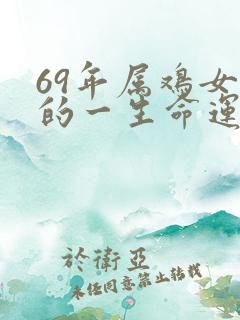 69年属鸡女
的一生命运
於衛亞
未经同意禁止转载